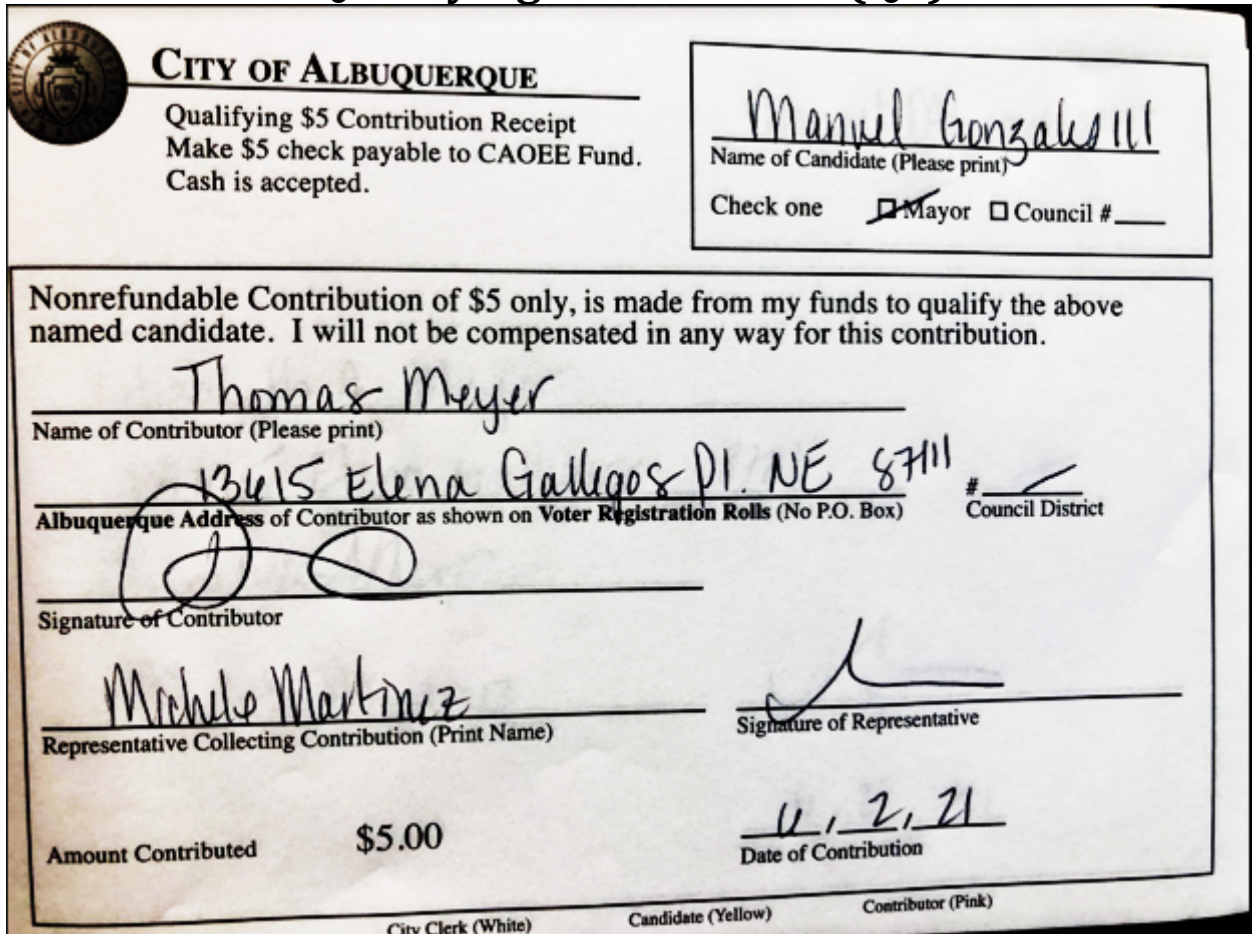 CITY OF ALBUQUERQUE
Qualifying $5 Contribution Receipt
Make $5 check payable to CAOEE Fund.
Cash is accepted.
Manuel Gonzales III
Name of Candidate (Please print)
Check one Mayor Council #
Nonrefundable Contribution of $5 only, is made from my funds to qualify the above
named candidate. I will not be compensated in any way for this contribution.
Thomas Meyer
Name of Contributor (Please print)
Elena Gallegos Pl. NE 87111
#
Albuquerque Address of Contributor as shown on Voter Registration Rolls (No P.O. Box) Council District
Signature of Contributor
Michele Martinez
Representative Collecting Contribution (Print Name)
Signature of Representative
Amount Contributed $5.00
2, 21
Date of Contribution
City Clerk (White) Candidate (Yellow) Contributor (Pink)